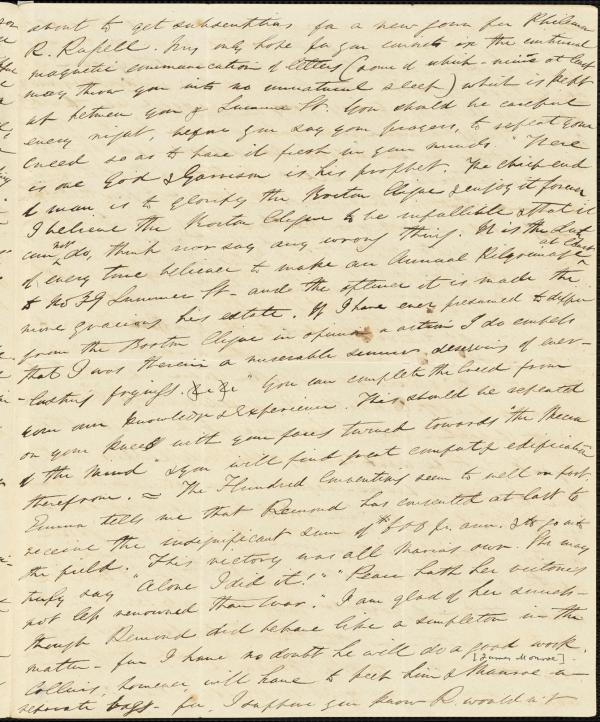 about to get subscriptions for a new gown for Philemon
R. Russell. My only hope for your
magnetic communication of letters (some of which - mine at least
may throw you into no unnatural sleep) which is kept
up between you & Summer St. You should be careful
every night, before you say your prayers, to repeat your
creed so as to have it fresh in your minds. "There
is one God & Garrison is his prophet. The chief end
of man is to glorify the Boston Clique & enjoy it forever
I believe the Boston Clique to be infallible & that it
can not do, think nor say any wrong thing. It is the duty
of every true believer to make an Annual Pilgrimage at least
to No 39 Summer St - and the oftener it is made the
more gracious his estate. If I have ever presumed to differ
from the Boston Clique in opinion or action I do confess
that I was therein a miserable sinner deserving of ever-
-lasting
&c &c" You can complete the Creed from
your own knowledge & experience. This should be repeated
on your knees with your faces turned towards "the Mecca
of the mind" & you will find great comfort & edification
therefrom. = The Hundred Conventions seem to well on foot.
Emma tells me that Remond has consented at last to
receive the insignificant sum of per ann. & to go into
the field. This victory was all Maria's own. She may
truly say "Alone I did it!" "Peace hath her victories
not less renowned than War." I am glad of her success -
though Remond did behave like a simpleton in the
matter - for I have no doubt he will do a good work.
[James Monroe]
Collins, however will have to keep him & Monroe in
separate bags - for, I suppose you know R. would not